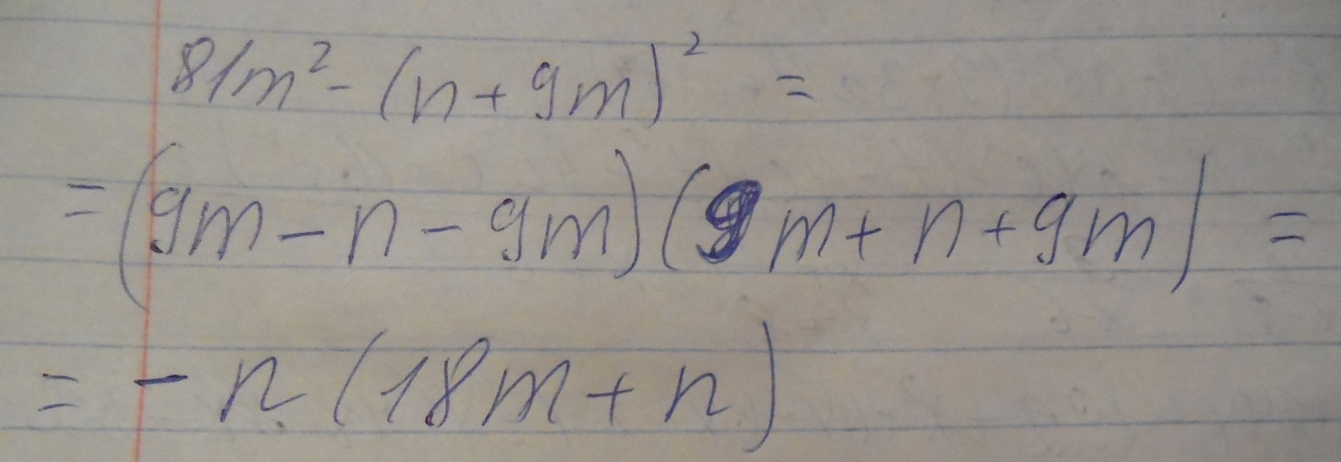 81m² - (n + 9m)² =
= (9m - n - 9m)(9m + n + 9m) =
= - n (18m + n)